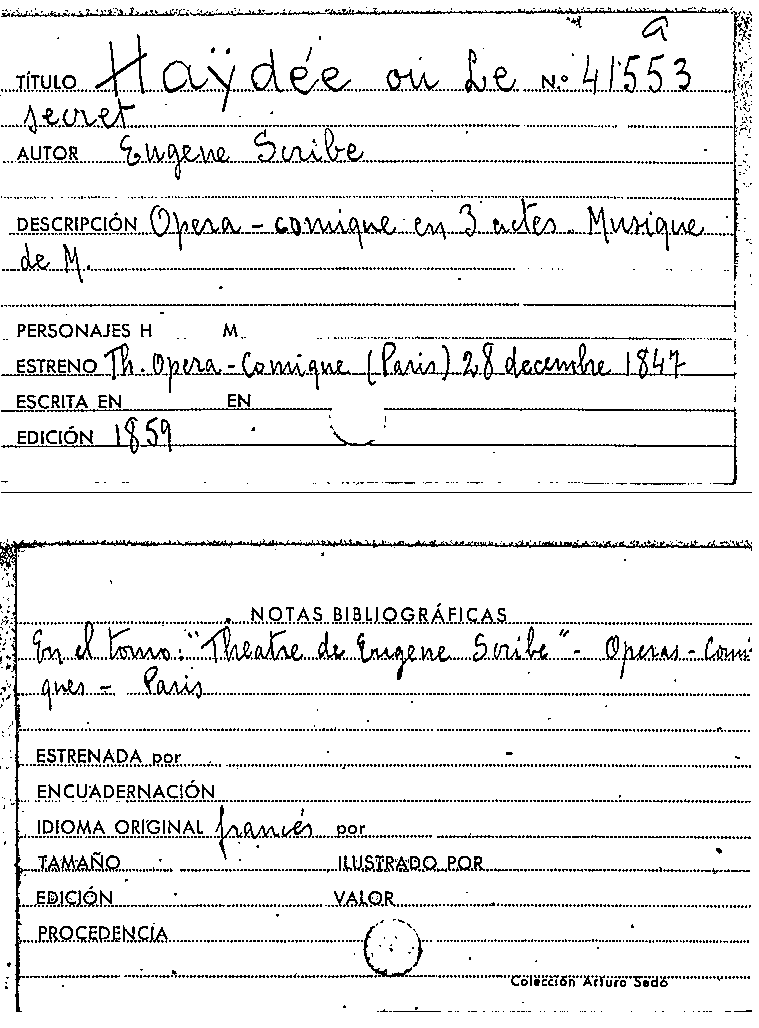 a
TÍTULO Haÿdée ou Le N.º 41553
secret
AUTOR Eugene Scribe
DESCRIPCIÓN Opera - comique en 3 actes. Musique
de M.
PERSONAJES H M
ESTRENO Th. Opera-Comique (Paris) 28 decembre 1847
ESCRITA EN EN
EDICIÓN 1859
NOTAS BIBLIOGRÁFICAS
En el tomo: "Theatre de Eugene Scribe" - Operas - Comi
ques - Paris
ESTRENADA por
ENCUADERNACIÓN
IDIOMA ORIGINAL francés por
TAMAÑO ILUSTRADO POR
EDICIÓN VALOR
PROCEDENCIA
Colección Arturo Sedó